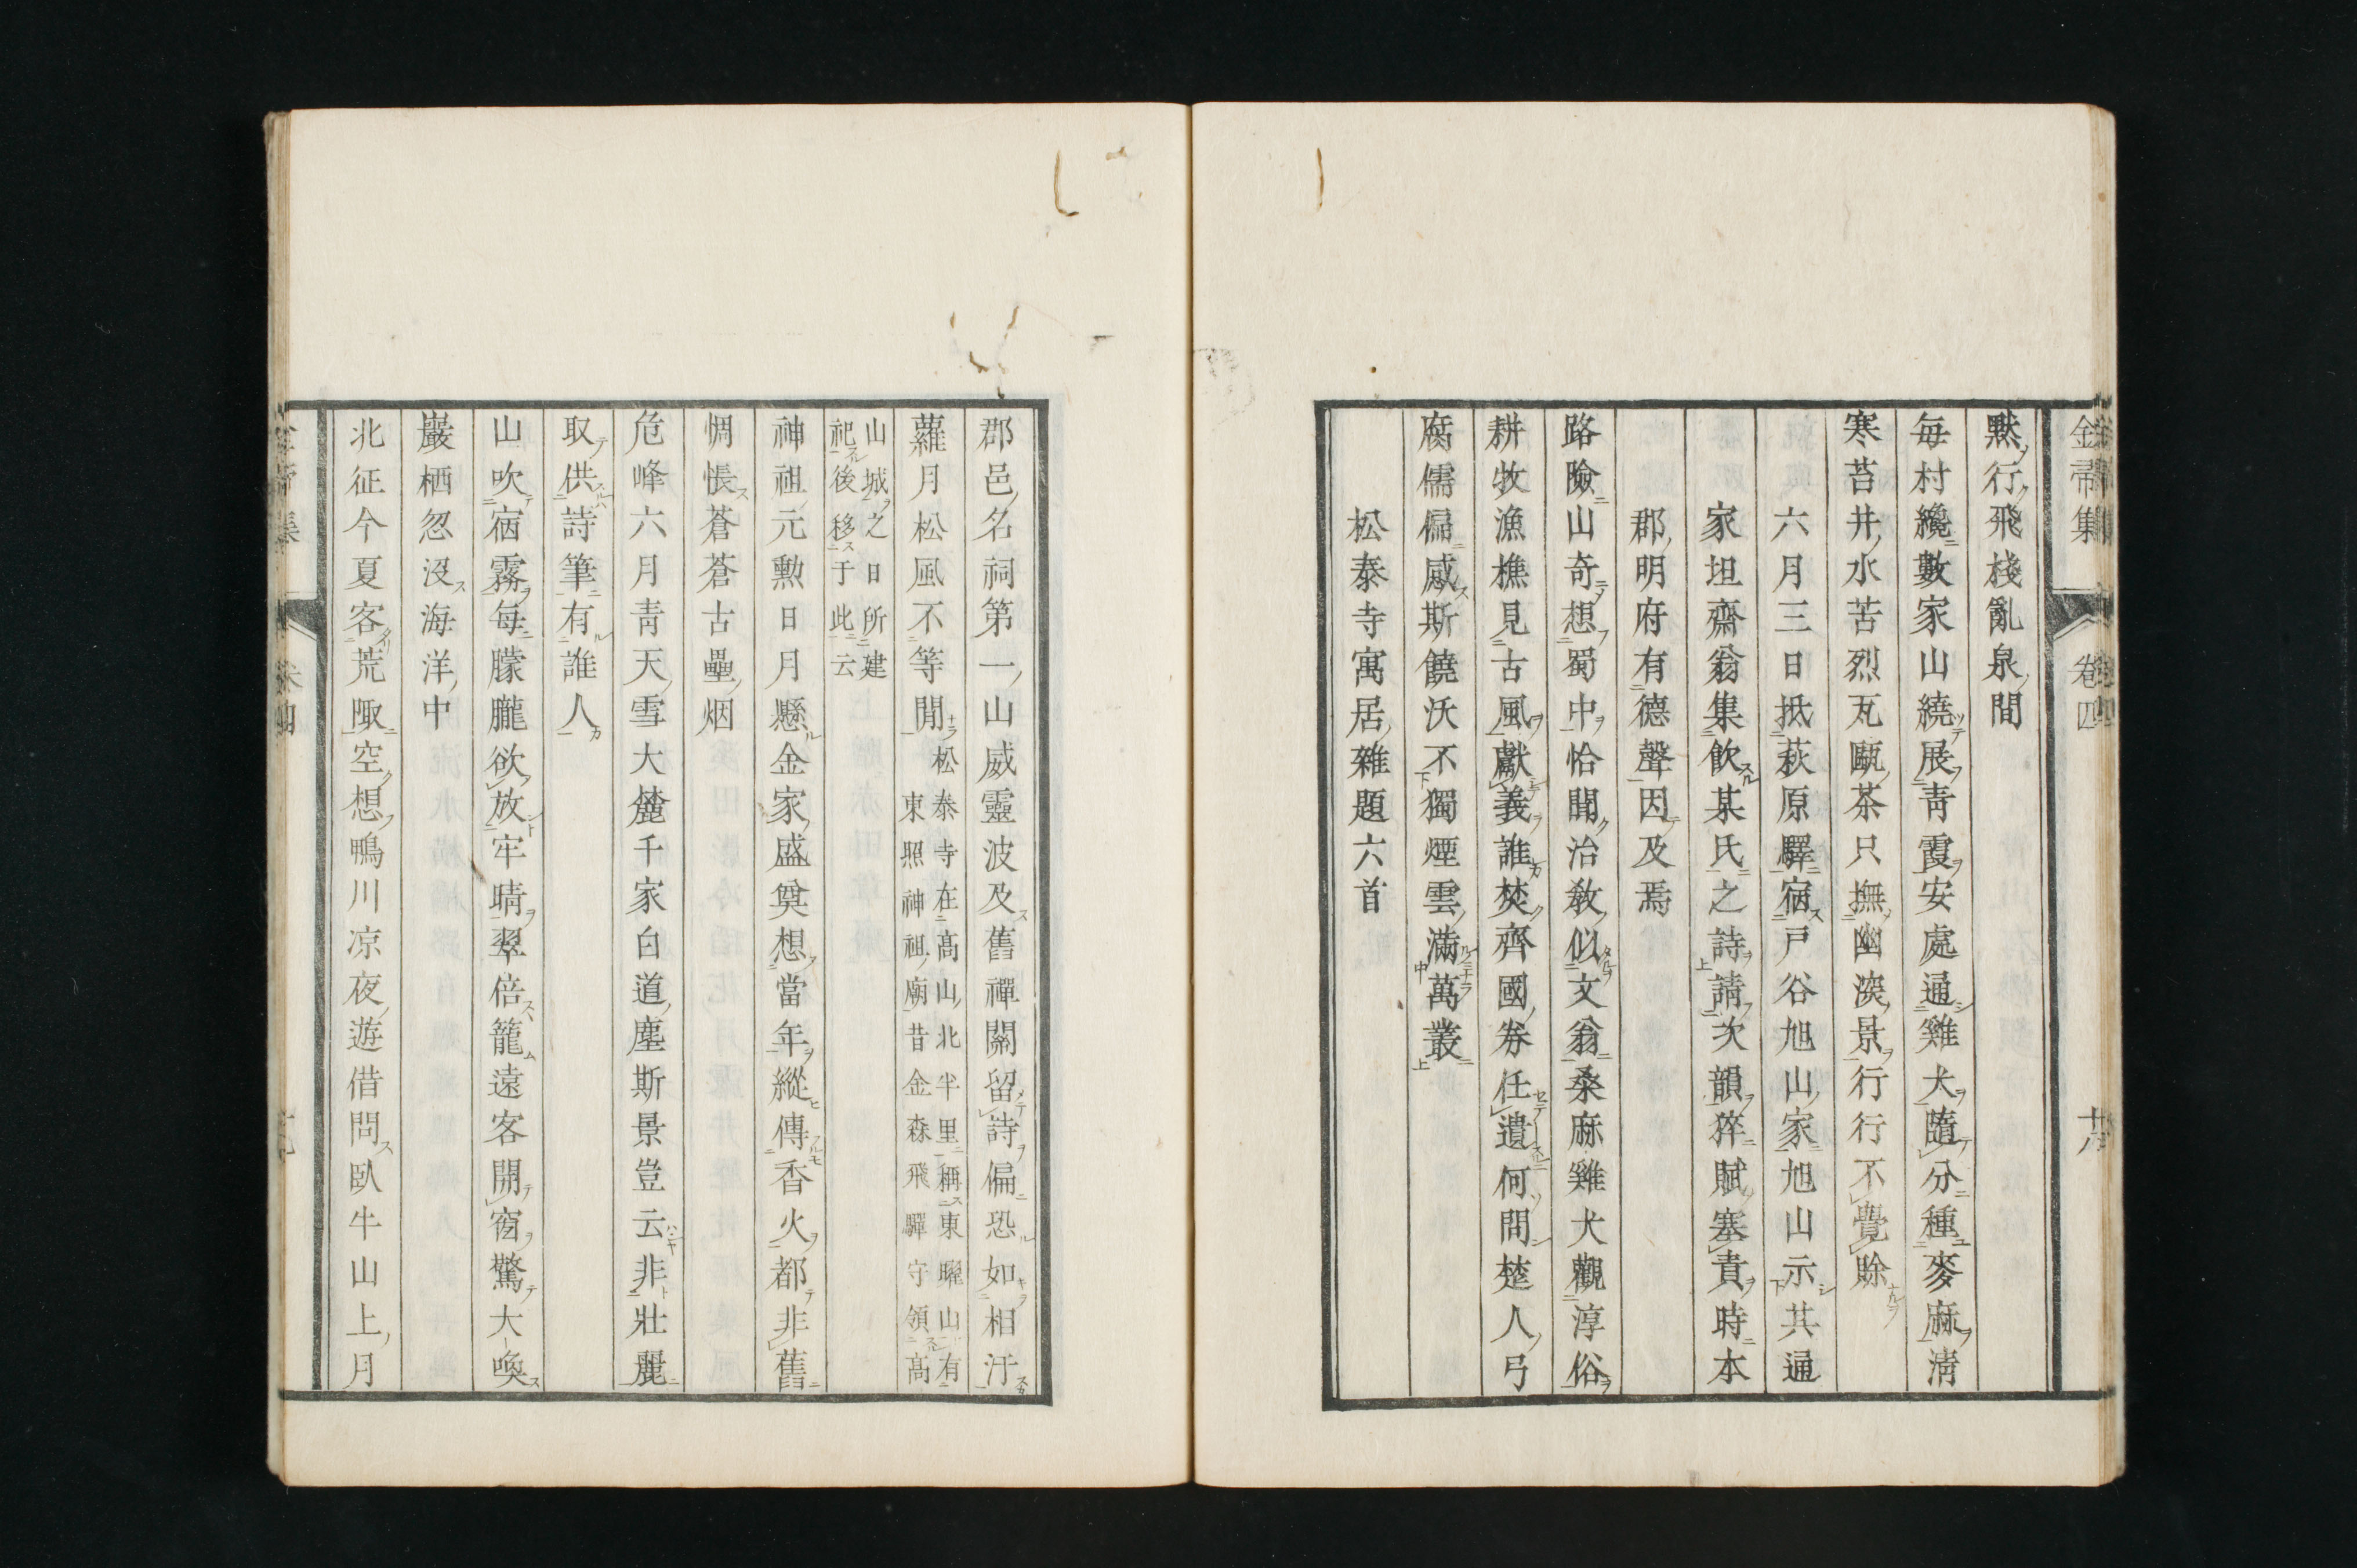 金帚集 卷四 十八
黙行飛棧亂泉間
毎村纔數家山繞展青霞安處通雞犬隨分種麥麻淸
寒苔井水苦烈瓦甌茶只撫幽深景行行不覺賖
六月三日抵萩原驛宿戸谷旭山家旭山示其通
家坦齋翁集飲某氏之詩請次韻猝賦塞責時本
郡明府有德聲因及焉
路險山奇想蜀中恰聞治教似文翁桑麻雞犬觀淳俗
耕牧漁樵見古風獻義誰焚齊國券任遺何問楚人弓
腐儒偏感斯饒沃不獨煙雲滿萬叢
松泰寺寓居雜題六首
郡邑名祠第一山威靈波及舊禪關留詩偏恐如相汙
蘿月松風不等閒松泰寺在高山北半里稱東曜山有
東照神祖廟昔金森飛驒守領高
山城之日所建
祀後移于此云
神祖元勲日月懸金家盛奠想當年縱傳香火都非舊
惆悵蒼蒼古壘烟
危峰六月靑天雪大麓千家白道塵斯景豈云非壯麗
取供詩筆有誰人
山吹宿霧每朦朧欲放牢晴翠倍籠遠客開窓驚大喚
巖栖忽沒海洋中
北征今夏客荒陬空想鴨川凉夜遊借問臥牛山上月
卷四